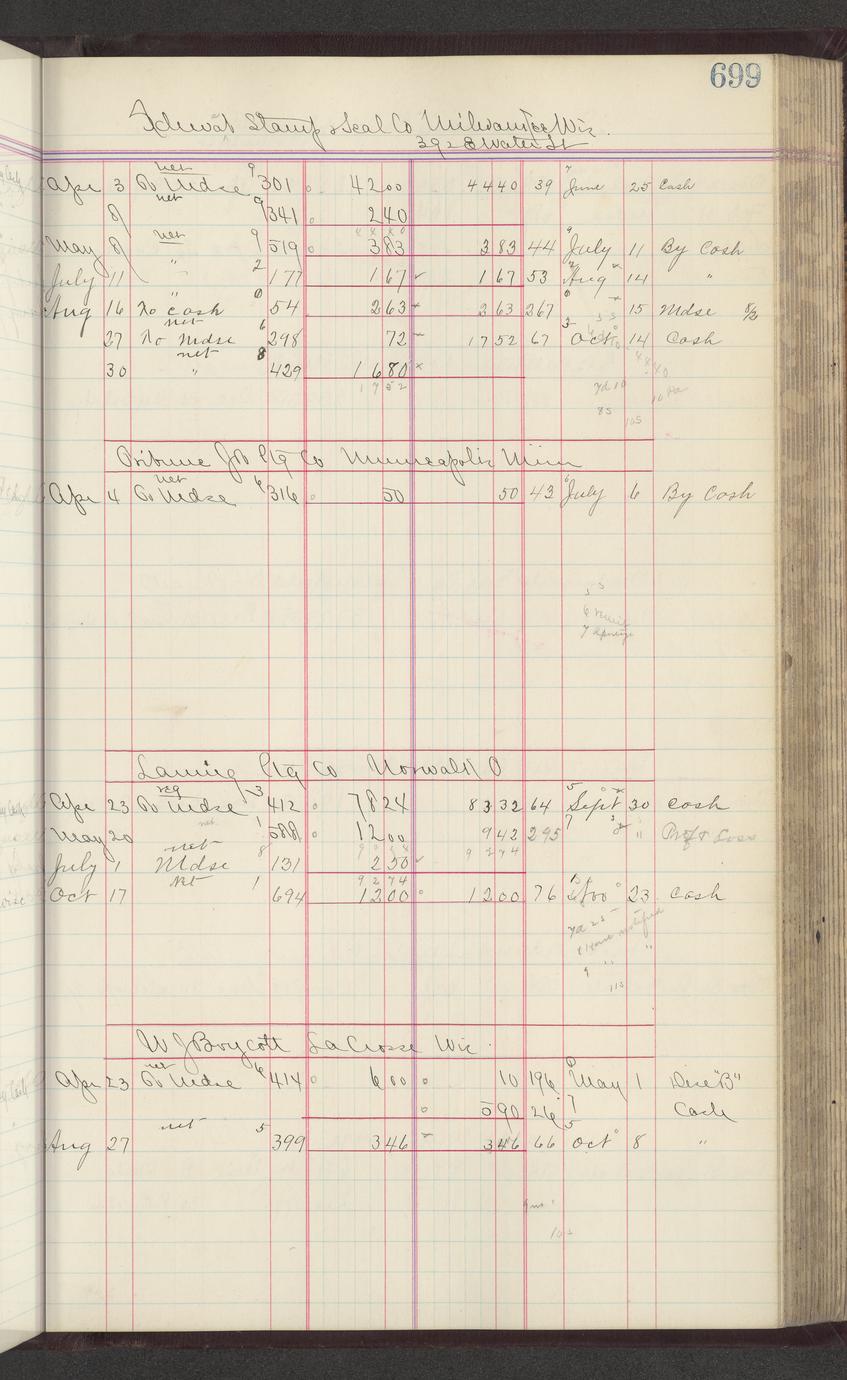 699
Schwab Stamp & Seal Co Milwaukee Wis.
392 E Water St
Apr 3 To Mdse net 9 301 42 00 44 40 39 7 June 25 Cash
8 net 9 341 2 40
44 40
May 8 net 9 519 3 83 3 83 44 9 July 11 By Cash
July 11 " 2 177 1 67 1 67 53 Aug 14 "
Aug 16 To Cash " 0 54 2 63 2 63 267 0 15 Mdse 8/2
27 To Mdse net 6 298 72 17 52 67 3 Oct 14 Cash
30 net " 8 429 16 80
17 52
85
105
Tribune Job Ptg Co Minneapolis Minn
Apr 4 To Mdse net 6 316 50 50 43 6 July 6 By Cash
Laning Ptg Co Norwalk O
Apr 23 To Mdse reg 3 412 78 24 83 32 64 5 Sept 30 Cash
May 20 net 1 588 12 00 9 42 295 7 " Prof & Loss
July 1 Mdse net 8 131 2 50 92 74
92 74
Oct 17 Net 1 694 12 00 12 00 76 23 Cash
9 " "
115
W J Boycott LaCrosse Wis.
Apr 23 To Mdse net 6 414 6 00 10 196 0 May 1 Disc "B"
5 90 26 7 Cash
Aug 27 net 5 399 3 46 3 46 66 5 Oct 8 "
105